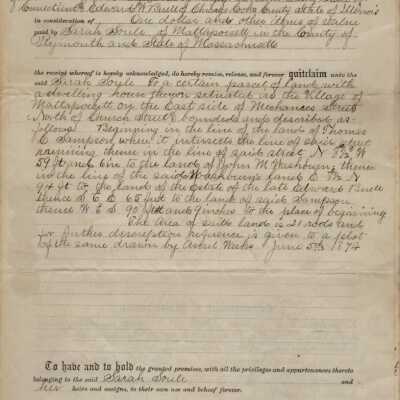 Connecticut Edward R. Buell of Chicago Cook County State of Illinois
in consideration of One dollar and other items of value
paid by Sarah Soule, of Mattapoisett in the County of
Plymouth and State of Massachusetts
the receipt whereof is hereby acknowledged, do hereby remise, release, and forever quitclaim unto the
said Sarah Soule To a certain parcel of land with
a dwelling house thereon situated in the Village of
Mattapoisett on the East side of Mechanics Street
North of Church Street & bounded and described as
follows: Beginning in the line of the land of Thomas
E Sampson where it intersects the line of said street
running thence in the line of said street N W
59 ft and 6 in to the land of John M Washburn, thence
in the line of the said Washburn's land E N
94 ft to the land of the Estate of the late Edward Buell
thence S E 65 feet to the land of said Sampson
thence W S 90 feet and 9 inches to the place of beginning
The area of said land is 21 rods and
for further description reference is given to a plot
of the same drawn by Weeks June 5th 1874
To have and to hold the granted premises, with all the privileges and appurtenances thereto
belonging to the said Sarah Soule and
her heirs and assigns, to their own use and behoof forever.